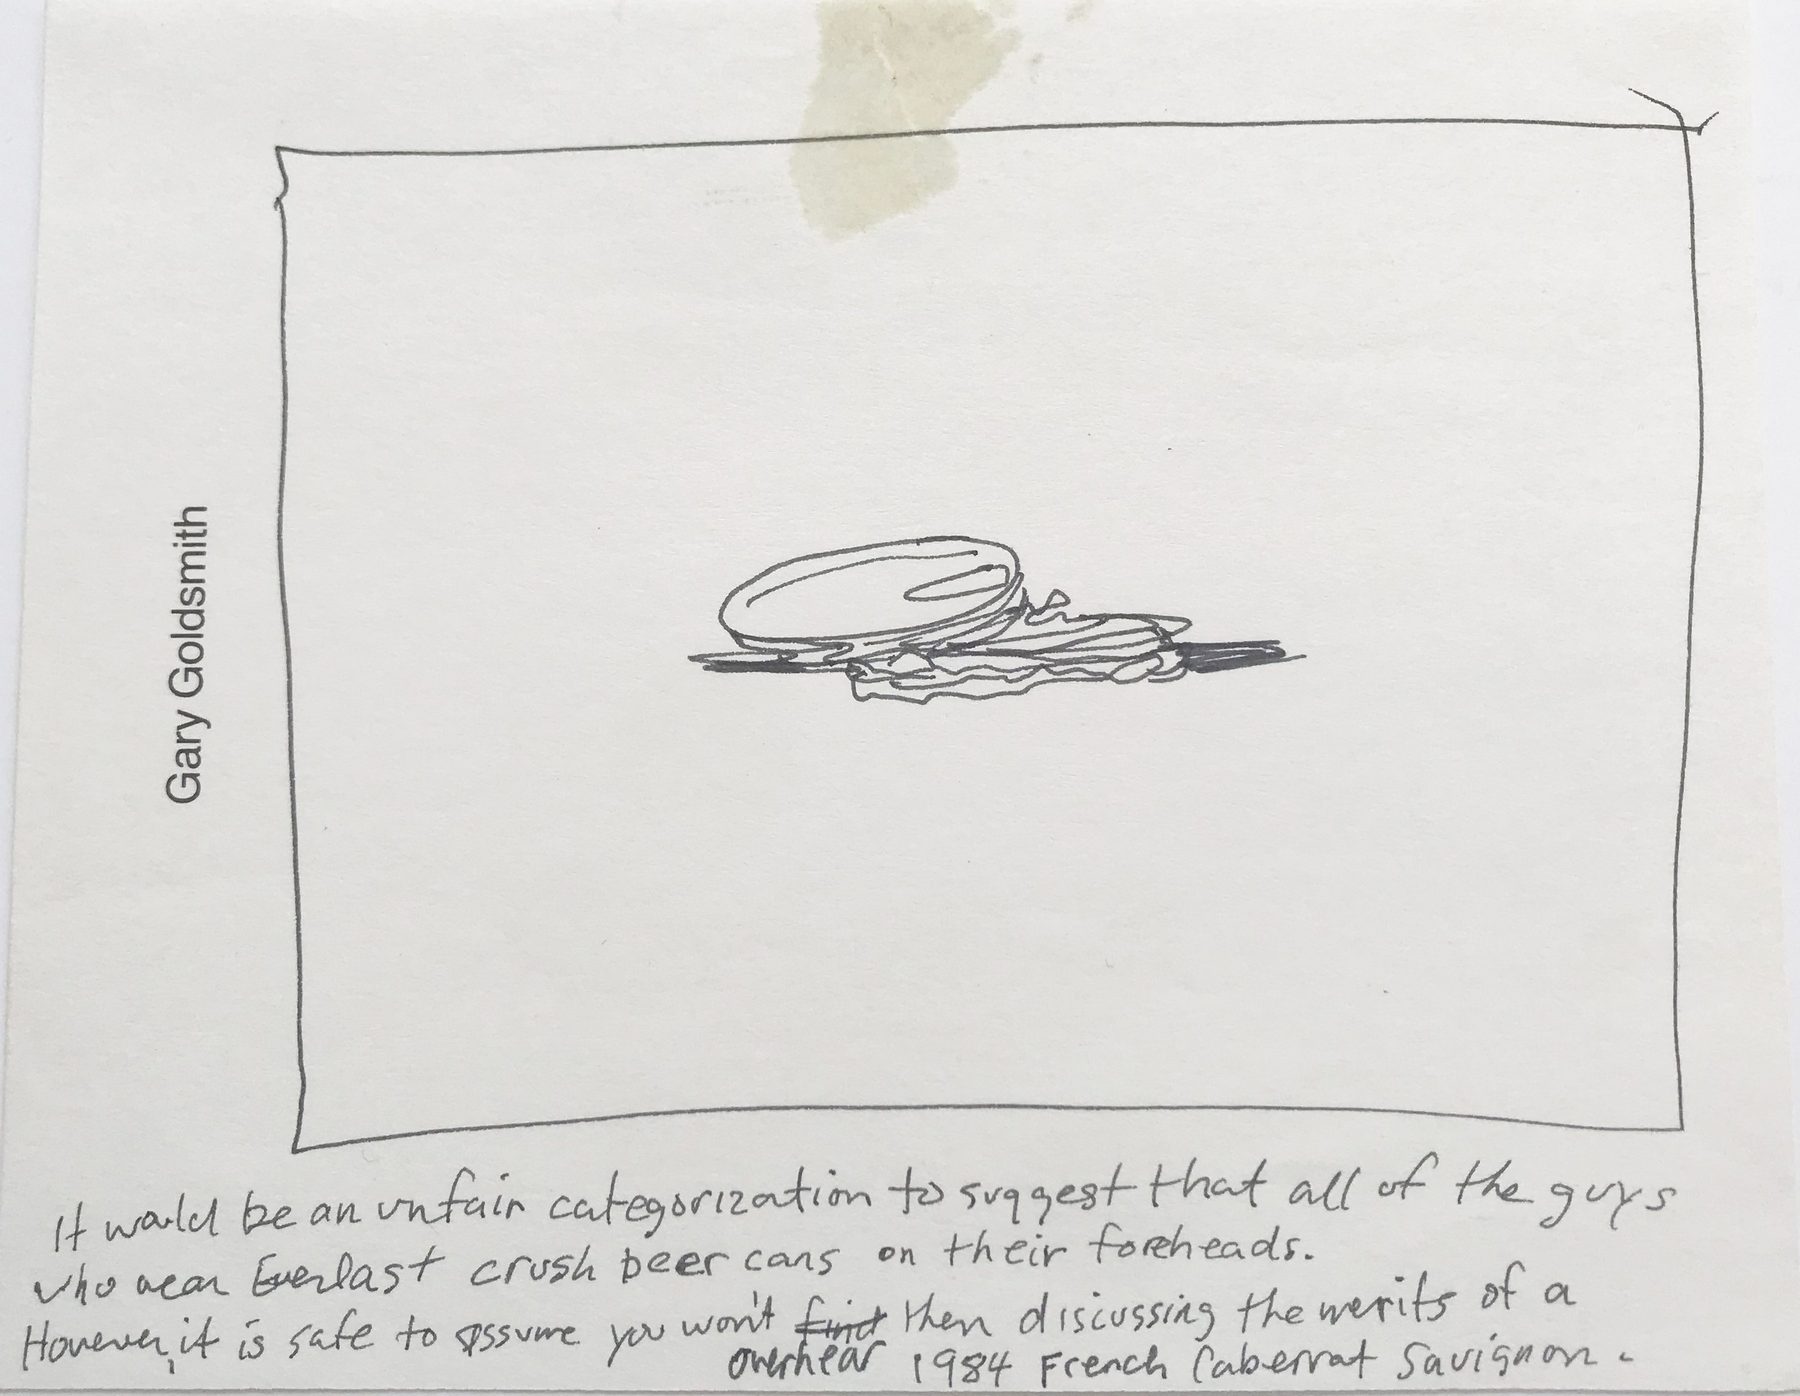 Gary Goldsmith
It would be an unfair categorization to suggest that all of the guys
who wear Everlast crush beer cans on their foreheads.
However, it is safe to assume you won't find them discussing the merits of a
overhear 1984 French Cabernat Savignon.